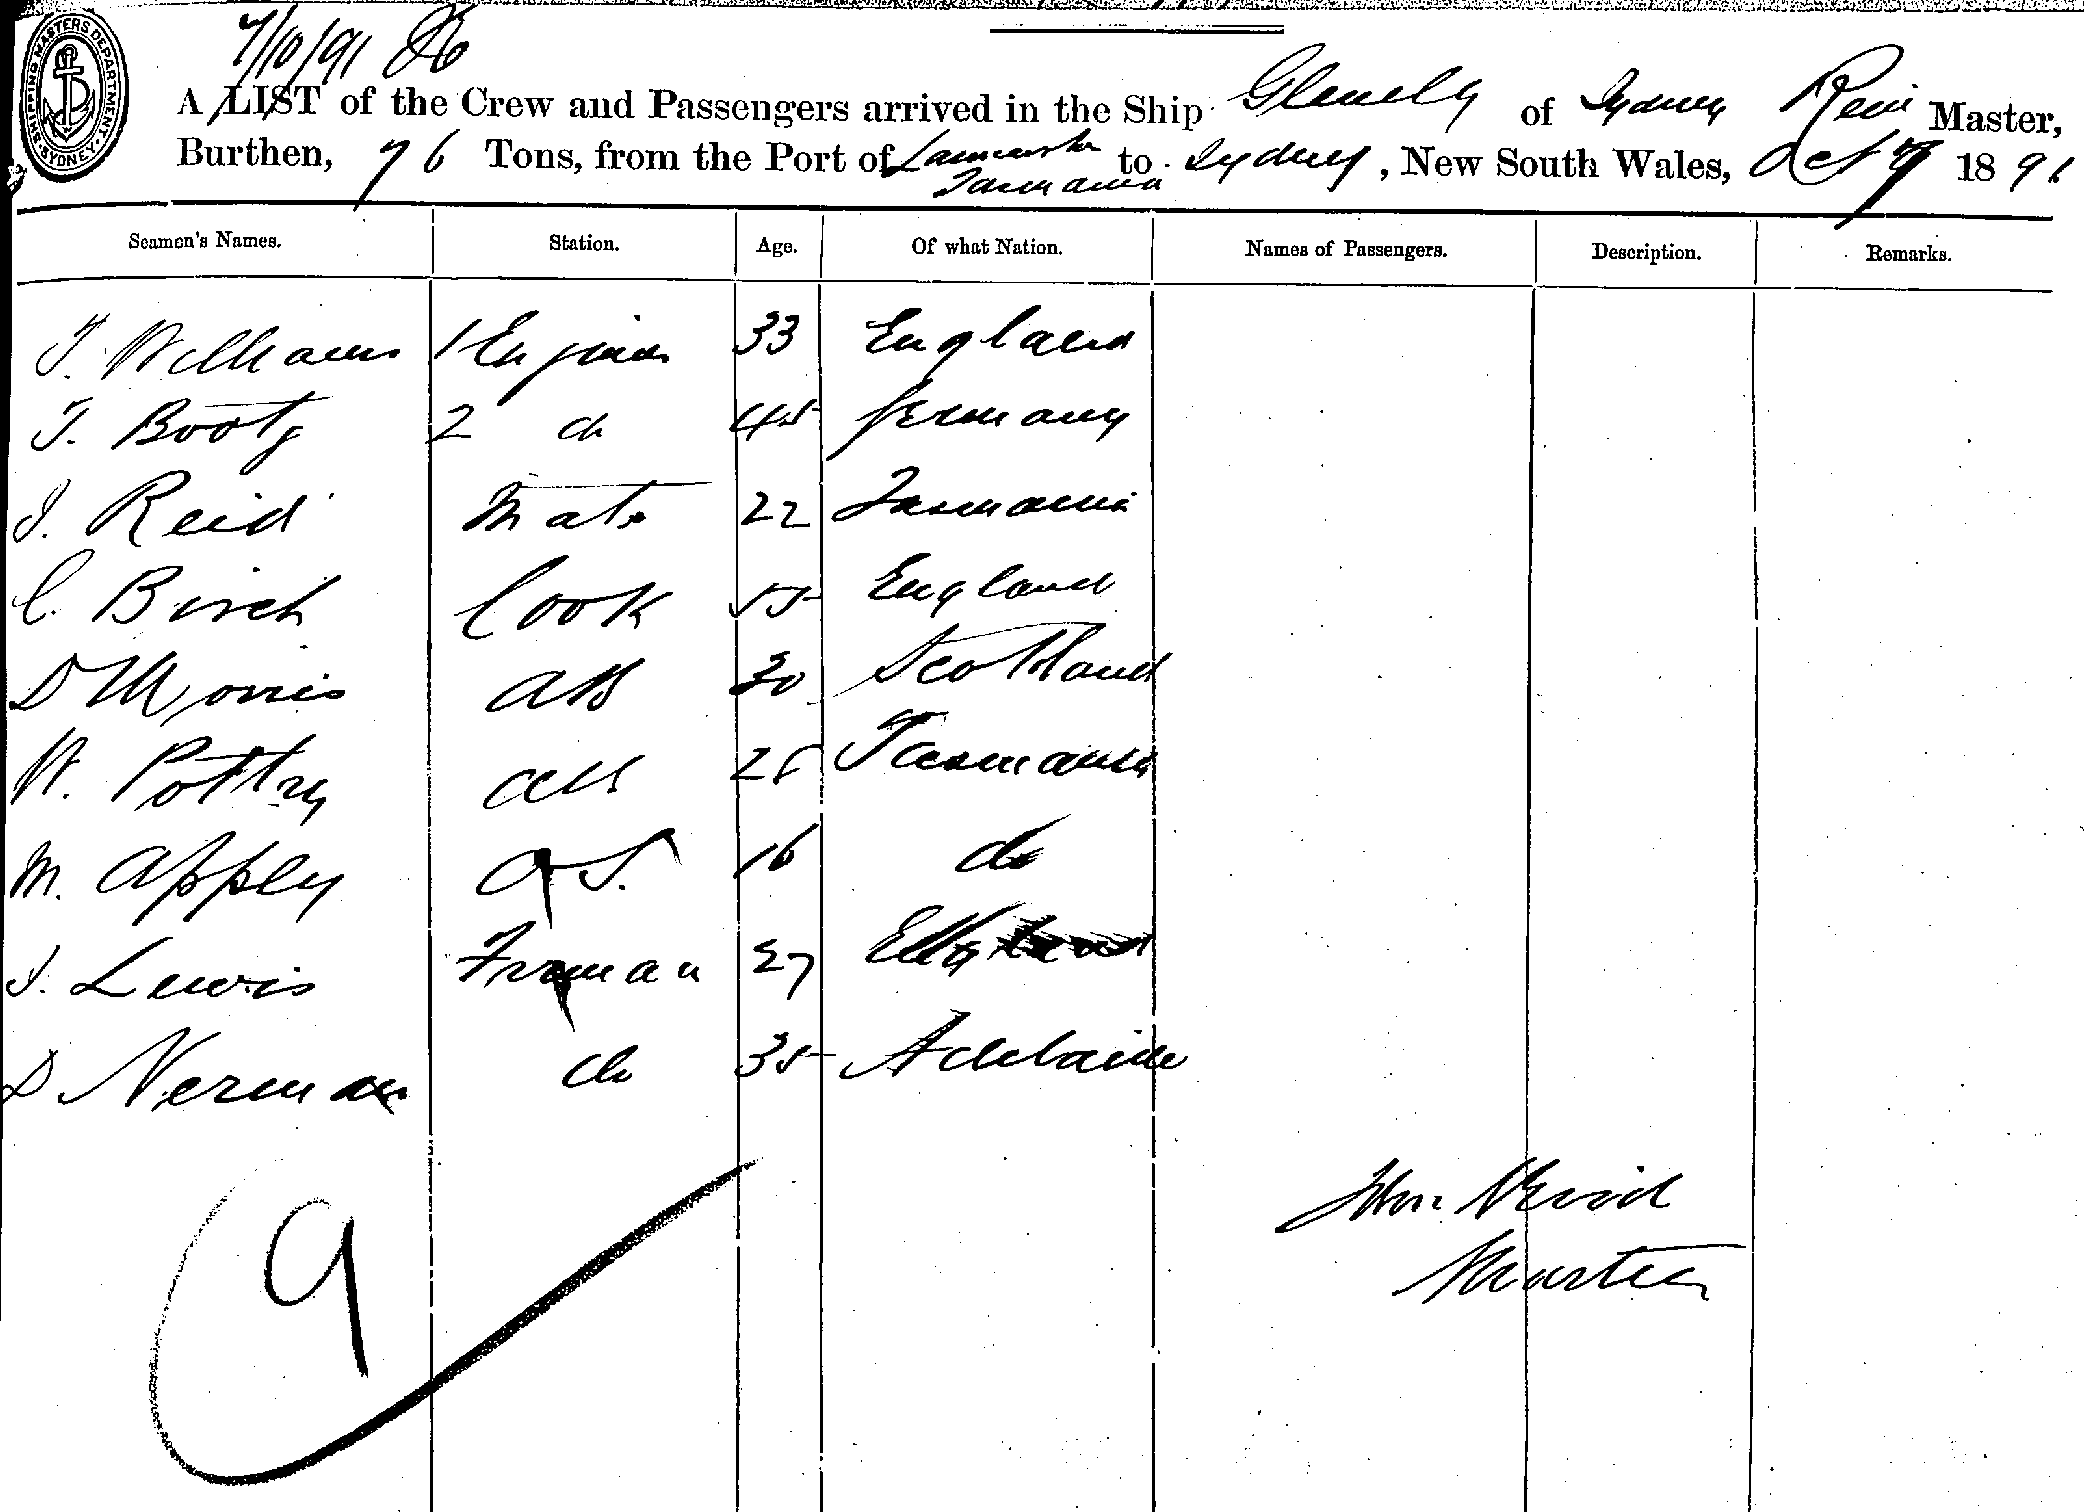 7/10/91
SHIPPING MASTERS DEPARTMENT SYDNEY
A LIST of the Crew and Passengers arrived in the Ship Glenelg of Sydney Reid Master,
Burthen, 76 Tons, from the Port of Launceston Tasmania to Sydney, New South Wales, Oct 7 1891
Seamen's Names. Station. Age. Of what Nation. Names of Passengers. Description. Remarks.
T. Williams 1 Engineer 33 England
T. Booty 2 do 45 Germany
J. Reid Mate 22 Tasmania
C. Birch Cook 55 England
D Morris AB 30 Scotland
W. Pottry AB 28 Tasmania
M. Appley O.S. 16 do
J. Lewis Fireman 27
D Nerman do 35 Adelaide
9
John Reid
Master